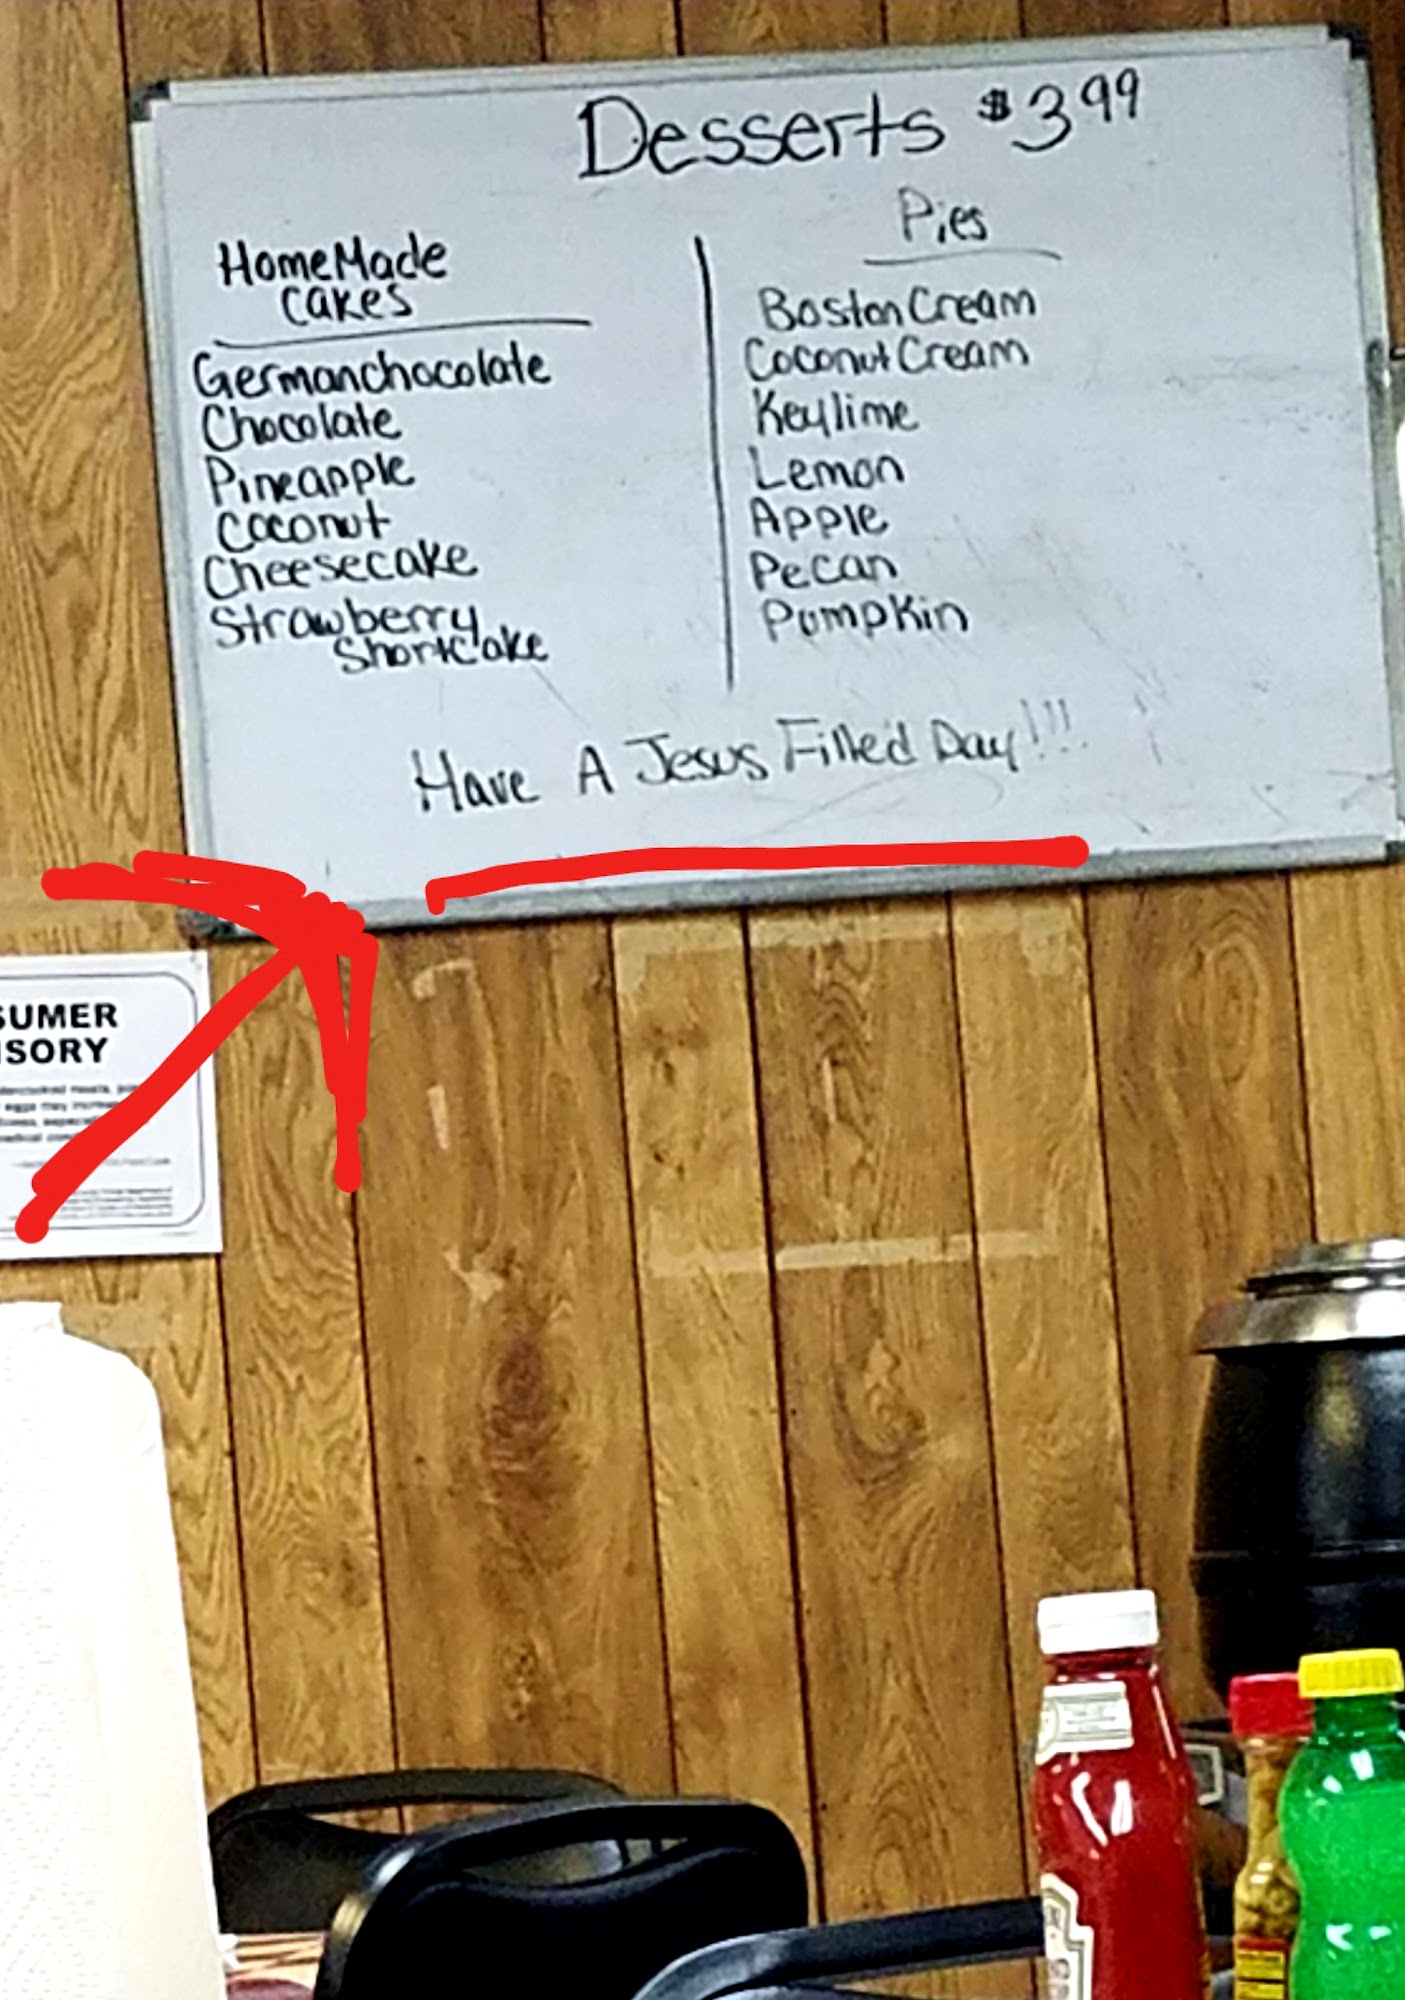 Desserts $3.99
HomeMade
Cakes
Germanchocolate
Chocolate
Pineapple
Coconut
Cheesecake
Strawberry
Shortcake
Pies
Boston Cream
Coconut Cream
Keylime
Lemon
Apple
Pecan
Pumpkin
Have A Jesus Filled Day!!!
SUMER
ISORY